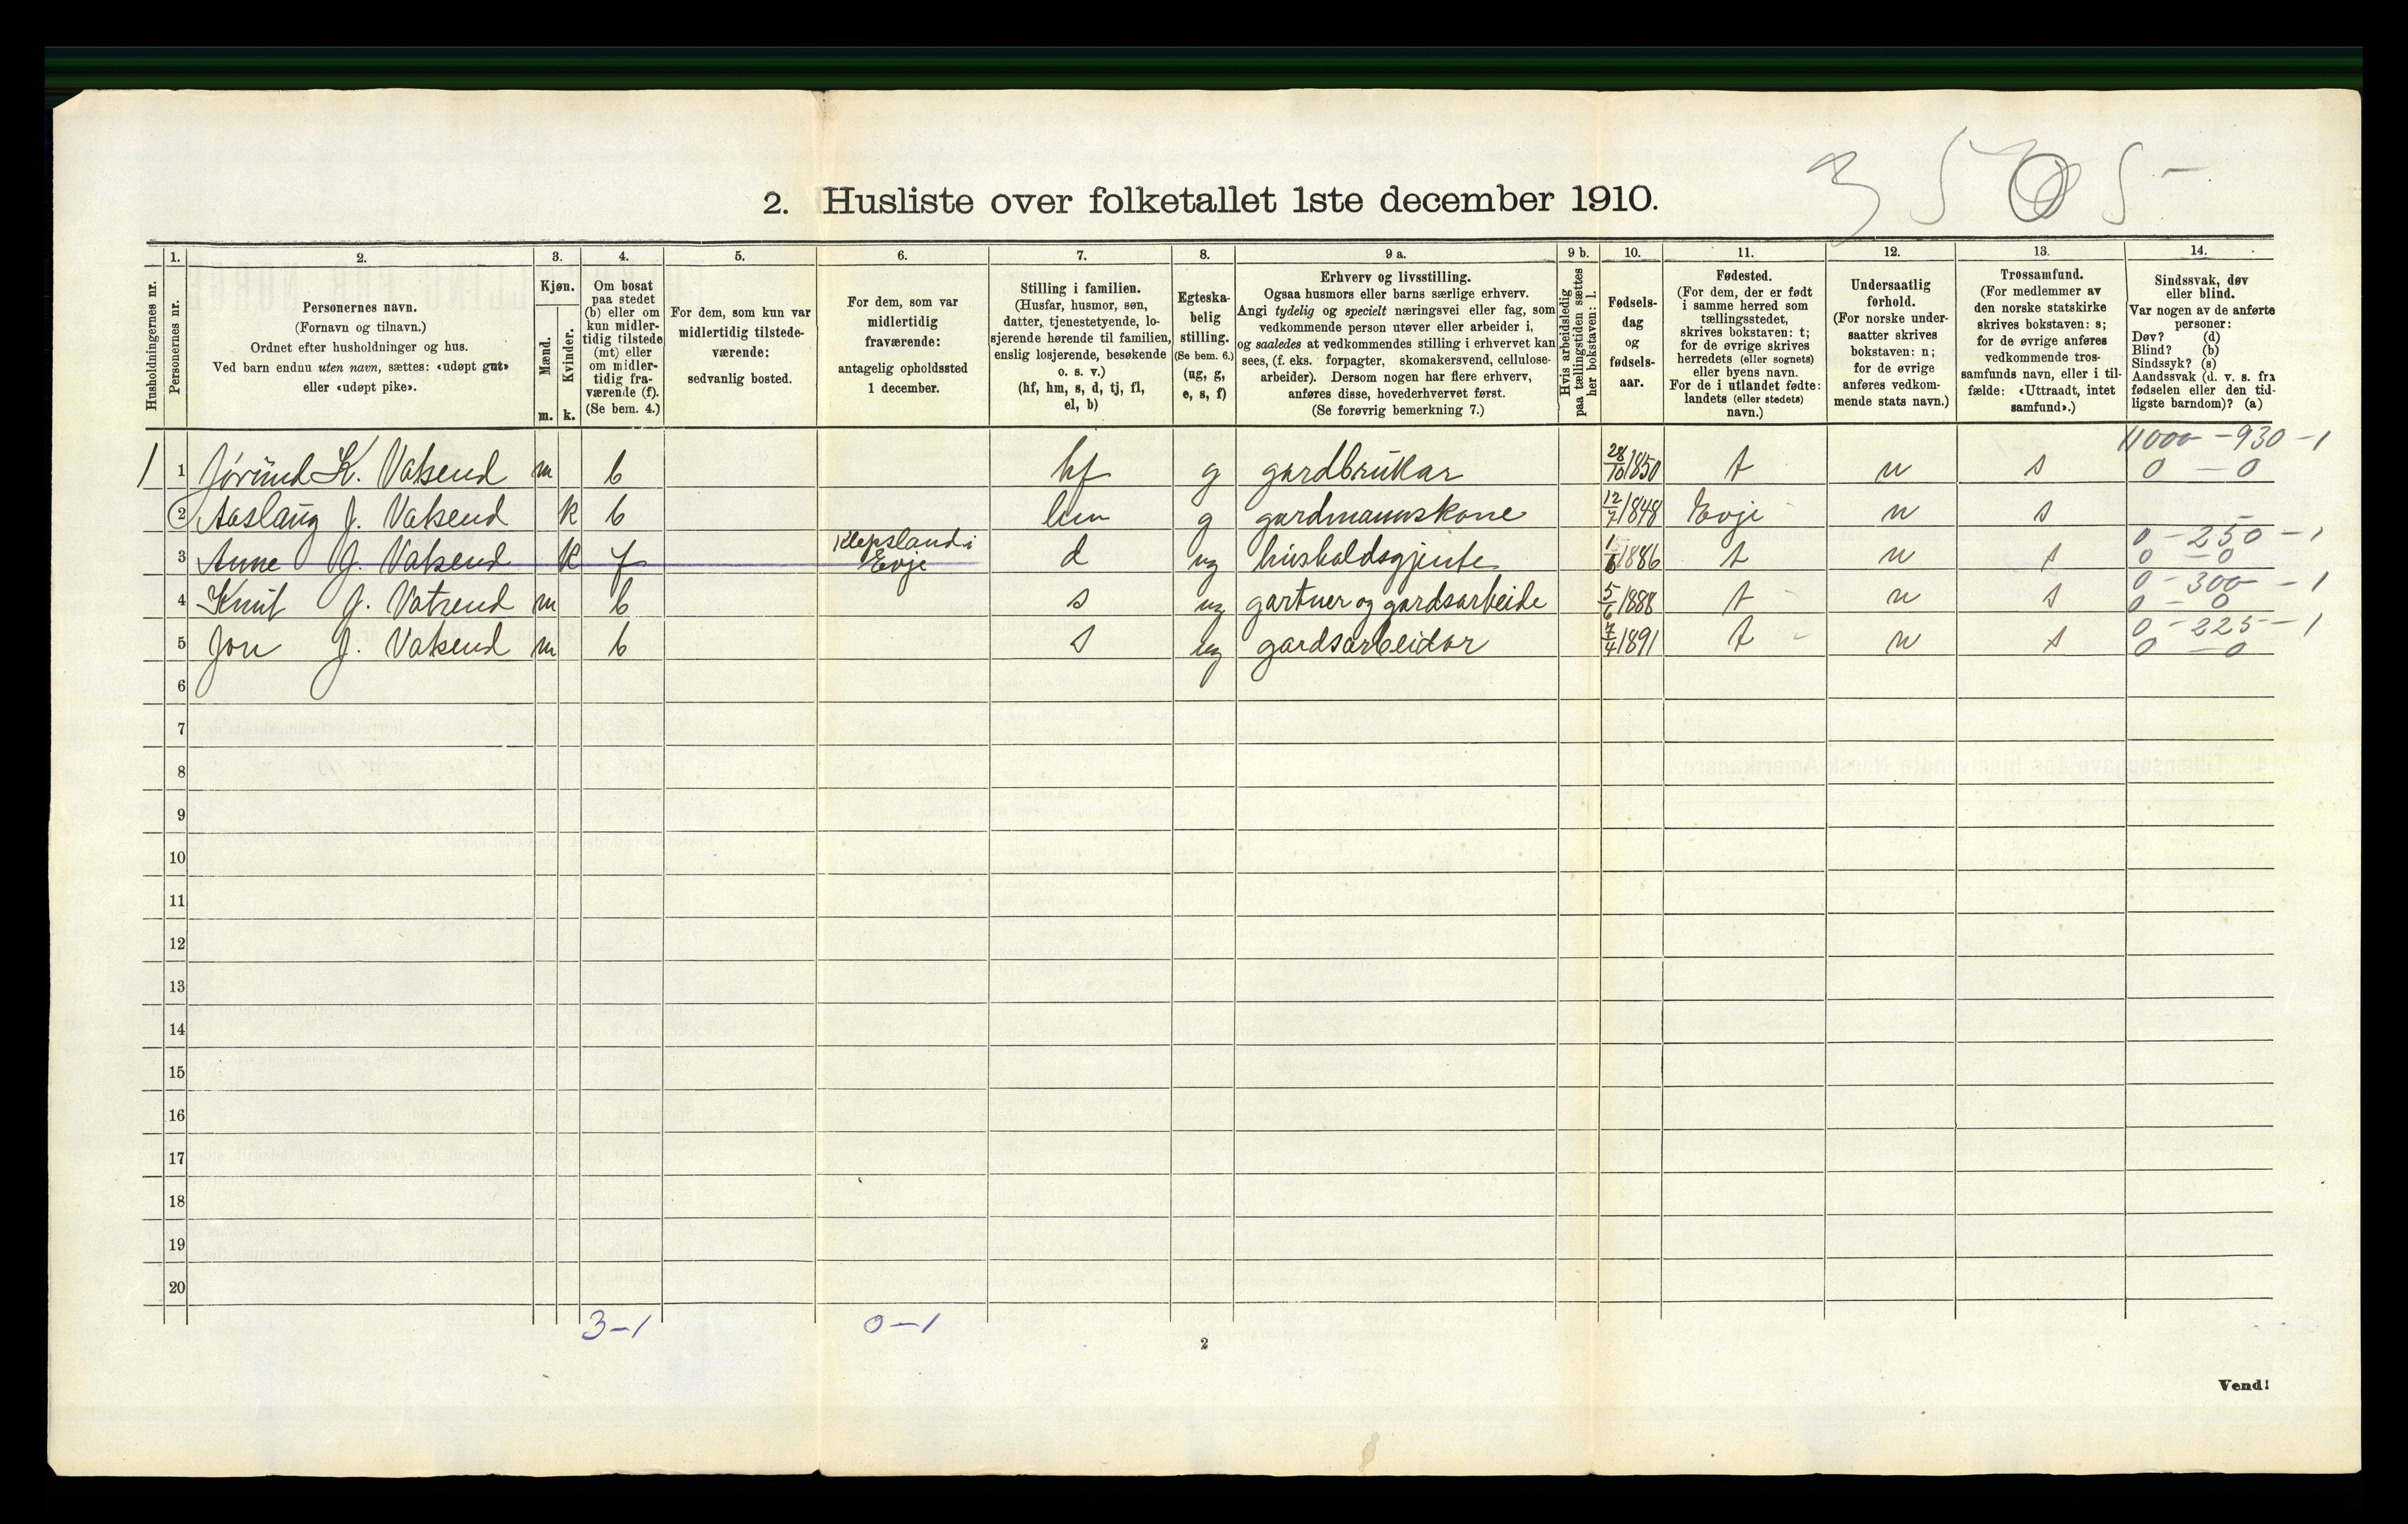 3505-
2. Husliste over folketallet 1ste december 1910.
Husholdningernes nr.
1.
Personernes nr.
2.
Personernes navn.
(Fornavn og tilnavn.)
Ordnet efter husholdninger og hus.
Ved barn endnu uten navn, sættes: «udøpt gut»
eller «udøpt pike».
3.
Kjøn.
Mænd.
m.
Kvinder.
k.
4.
Om bosat
paa stedet
(b) eller om
kun midler-
tidig tilstede
(mt) eller
om midler-
tidig fra-
værende (f).
(Se bem. 4.)
5.
For dem, som kun var
midlertidig tilstede-
værende:
sedvanlig bosted.
6.
For dem, som var
midlertidig
fraværende:
antagelig opholdssted
1 december.
7.
Stilling i familien.
(Husfar, husmor, søn,
datter, tjenestetyende, lo-
sjerende hørende til familien,
enslig losjerende, besøkende
o. s. v.)
(hf, hm, s, d, tj, fl,
el, b)
8.
Egteska-
belig
stilling.
(Se bem. 6.)
(ug, g,
e, s, f)
9 a.
Erhverv og livsstilling.
Ogsaa husmors eller barns særlige erhverv.
Angi tydelig og specielt næringsvei eller fag, som
vedkommende person utøver eller arbeider i,
og saaledes at vedkommendes stilling i erhvervet kan
sees, (f. eks. forpagter, skomakersvend, cellulose-
arbeider). Dersom nogen har flere erhverv,
anføres disse, hovederhvervet først.
(Se forøvrig bemerkning 7.)
9 b.
Hvis arbeidsledig
paa tællingstiden sættes
her bokstaven: l.
10.
Fødsels-
dag
og
fødsels-
aar.
11.
Fødested.
(For dem, der er født
i samme herred som
tællingsstedet,
skrives bokstaven: t;
for de øvrige skrives
herredets (eller sognets)
eller byens navn.
For de i utlandet fødte:
landets (eller stedets)
navn.)
12.
Undersaatlig
forhold.
(For norske under-
saatter skrives
bokstaven: n;
for de øvrige
anføres vedkom-
mende stats navn.)
13.
Trossamfund.
(For medlemmer av
den norske statskirke
skrives bokstaven: s;
for de øvrige anføres
vedkommende tros-
samfunds navn, eller i til-
fælde: «Uttraadt, intet
samfund».)
14.
Sindssvak, døv
eller blind.
Var nogen av de anførte
personer:
Døv? (d)
Blind? (b)
Sindssyk? (s)
Aandssvak (d. v. s. fra
fødselen eller den tid-
ligste barndom)? (a)
11000 - 930 - 1
1 1 Jørund K. Vatsend m b hf g gardbrukar 28/10 1850 t n s 0 - 0
2 Aaslaug J. Vatsend k b hm g gardmannskone 12/7 1848 Evje n s
Klepsland i 0 - 250 - 1
3 Anne J. Vatsend k f Evje d ug husholdsgjente 1886 t n s 0 - 0
0 - 300 - 1
4 Knut J. Vatsend m b s ug gartner og gardsarbeide 5/6 1888 t n s 0 - 0
0 - 225 - 1
5 Jon J. Vatsend m b s ug gardsarbeidar 7/4 1891 t n s 0 - 0
6
7
8
9
10
11
12
13
14
15
16
17
18
19
20
3-1 0-1
2
Vend!